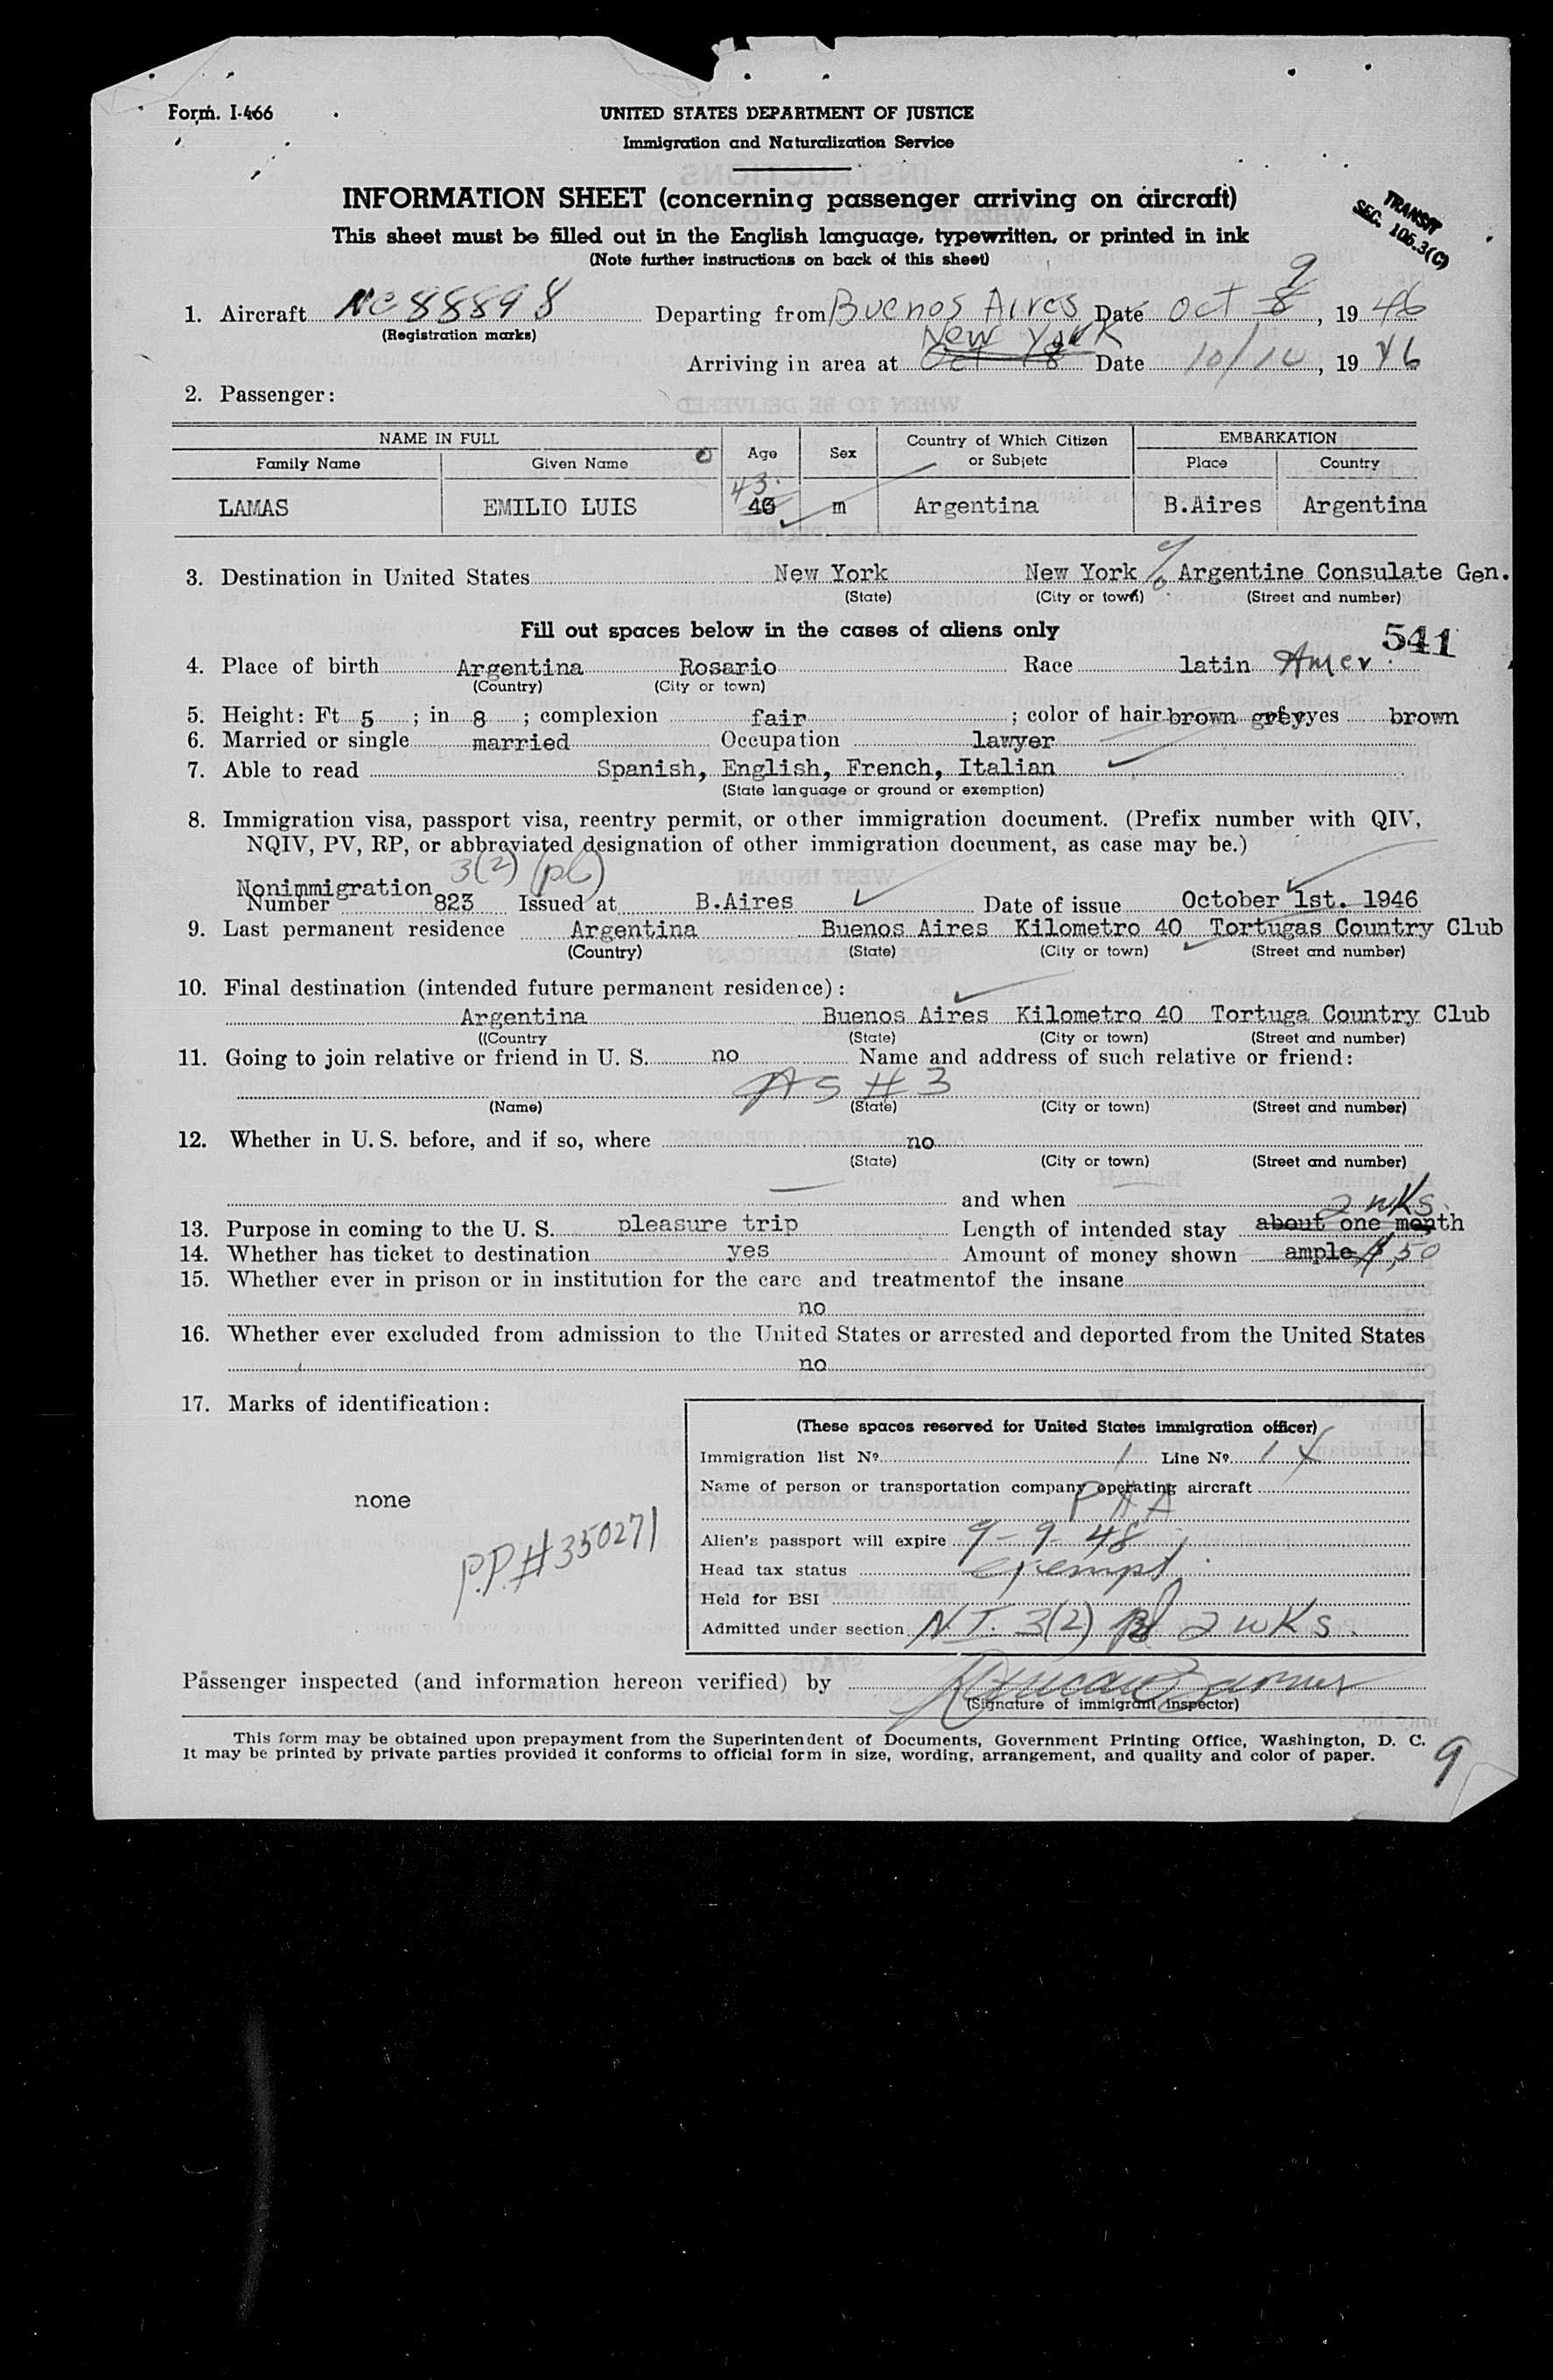 Form. I-466
UNITED STATES DEPARTMENT OF JUSTICE
Immigration and Naturalization Service
INFORMATION SHEET (concerning passenger arriving on aircraft)
This sheet must be filled out in the English language, typewritten, or printed in ink
(Note further instructions on back of this sheet)
TRANSIT
SEC. 106.3(C)
9
1. Aircraft NC 88898 Departing from Buenos Aires Date Oct 8, 1946
(Registration marks)
New York
Arriving in area at Oct 8 Date 10/10, 1946
2. Passenger:
NAME IN FULL Age Sex Country of Which Citizen or Subjetc EMBARKATION
Family Name Given Name Place Country
43
LAMAS EMILIO LUIS m Argentina B.Aires Argentina
3. Destination in United States New York New York c/o Argentine Consulate Gen.
(State) (City or town) (Street and number)
Fill out spaces below in the cases of aliens only
541
4. Place of birth Argentina Rosario Race latin Amer.
(Country) (City or town)
5. Height: Ft 5 ; in 8 ; complexion fair ; color of hair brown grey eyes brown
6. Married or single married Occupation lawyer
7. Able to read Spanish, English, French, Italian
(State language or ground or exemption)
8. Immigration visa, passport visa, reentry permit, or other immigration document. (Prefix number with QIV,
NQIV, PV, RP, or abbreviated designation of other immigration document, as case may be.)
3(2) (pl)
Nonimmigration
Number 823 Issued at B.Aires Date of issue October 1st. 1946
9. Last permanent residence Argentina Buenos Aires Kilometro 40 Tortugas Country Club
(Country) (State) (City or town) (Street and number)
10. Final destination (intended future permanent residence):
Argentina Buenos Aires Kilometro 40 Tortuga Country Club
((Country (State) (City or town) (Street and number)
11. Going to join relative or friend in U. S. no Name and address of such relative or friend:
AS # 3
(Name) (State) (City or town) (Street and number)
12. Whether in U. S. before, and if so, where no
(State) (City or town) (Street and number)
and when
2 wks.
13. Purpose in coming to the U. S. pleasure trip Length of intended stay about one month
14. Whether has ticket to destination yes Amount of money shown ample $50
15. Whether ever in prison or in institution for the care and treatmentof the insane
no
16. Whether ever excluded from admission to the United States or arrested and deported from the United States
no
17. Marks of identification:
none
P.P.#350271
(These spaces reserved for United States immigration officer)
Immigration list No 1 Line No 1 X
Name of person or transportation company operating aircraft
PAA
Alien's passport will expire 9-9-48
Head tax status exempt
Held for BSI
Admitted under section N.I. 3(2) pl 2 wks.
Passenger inspected (and information hereon verified) by
(Signature of immigrant inspector)
This form may be obtained upon prepayment from the Superintendent of Documents, Government Printing Office, Washington, D. C.
It may be printed by private parties provided it conforms to official form in size, wording, arrangement, and quality and color of paper.
9